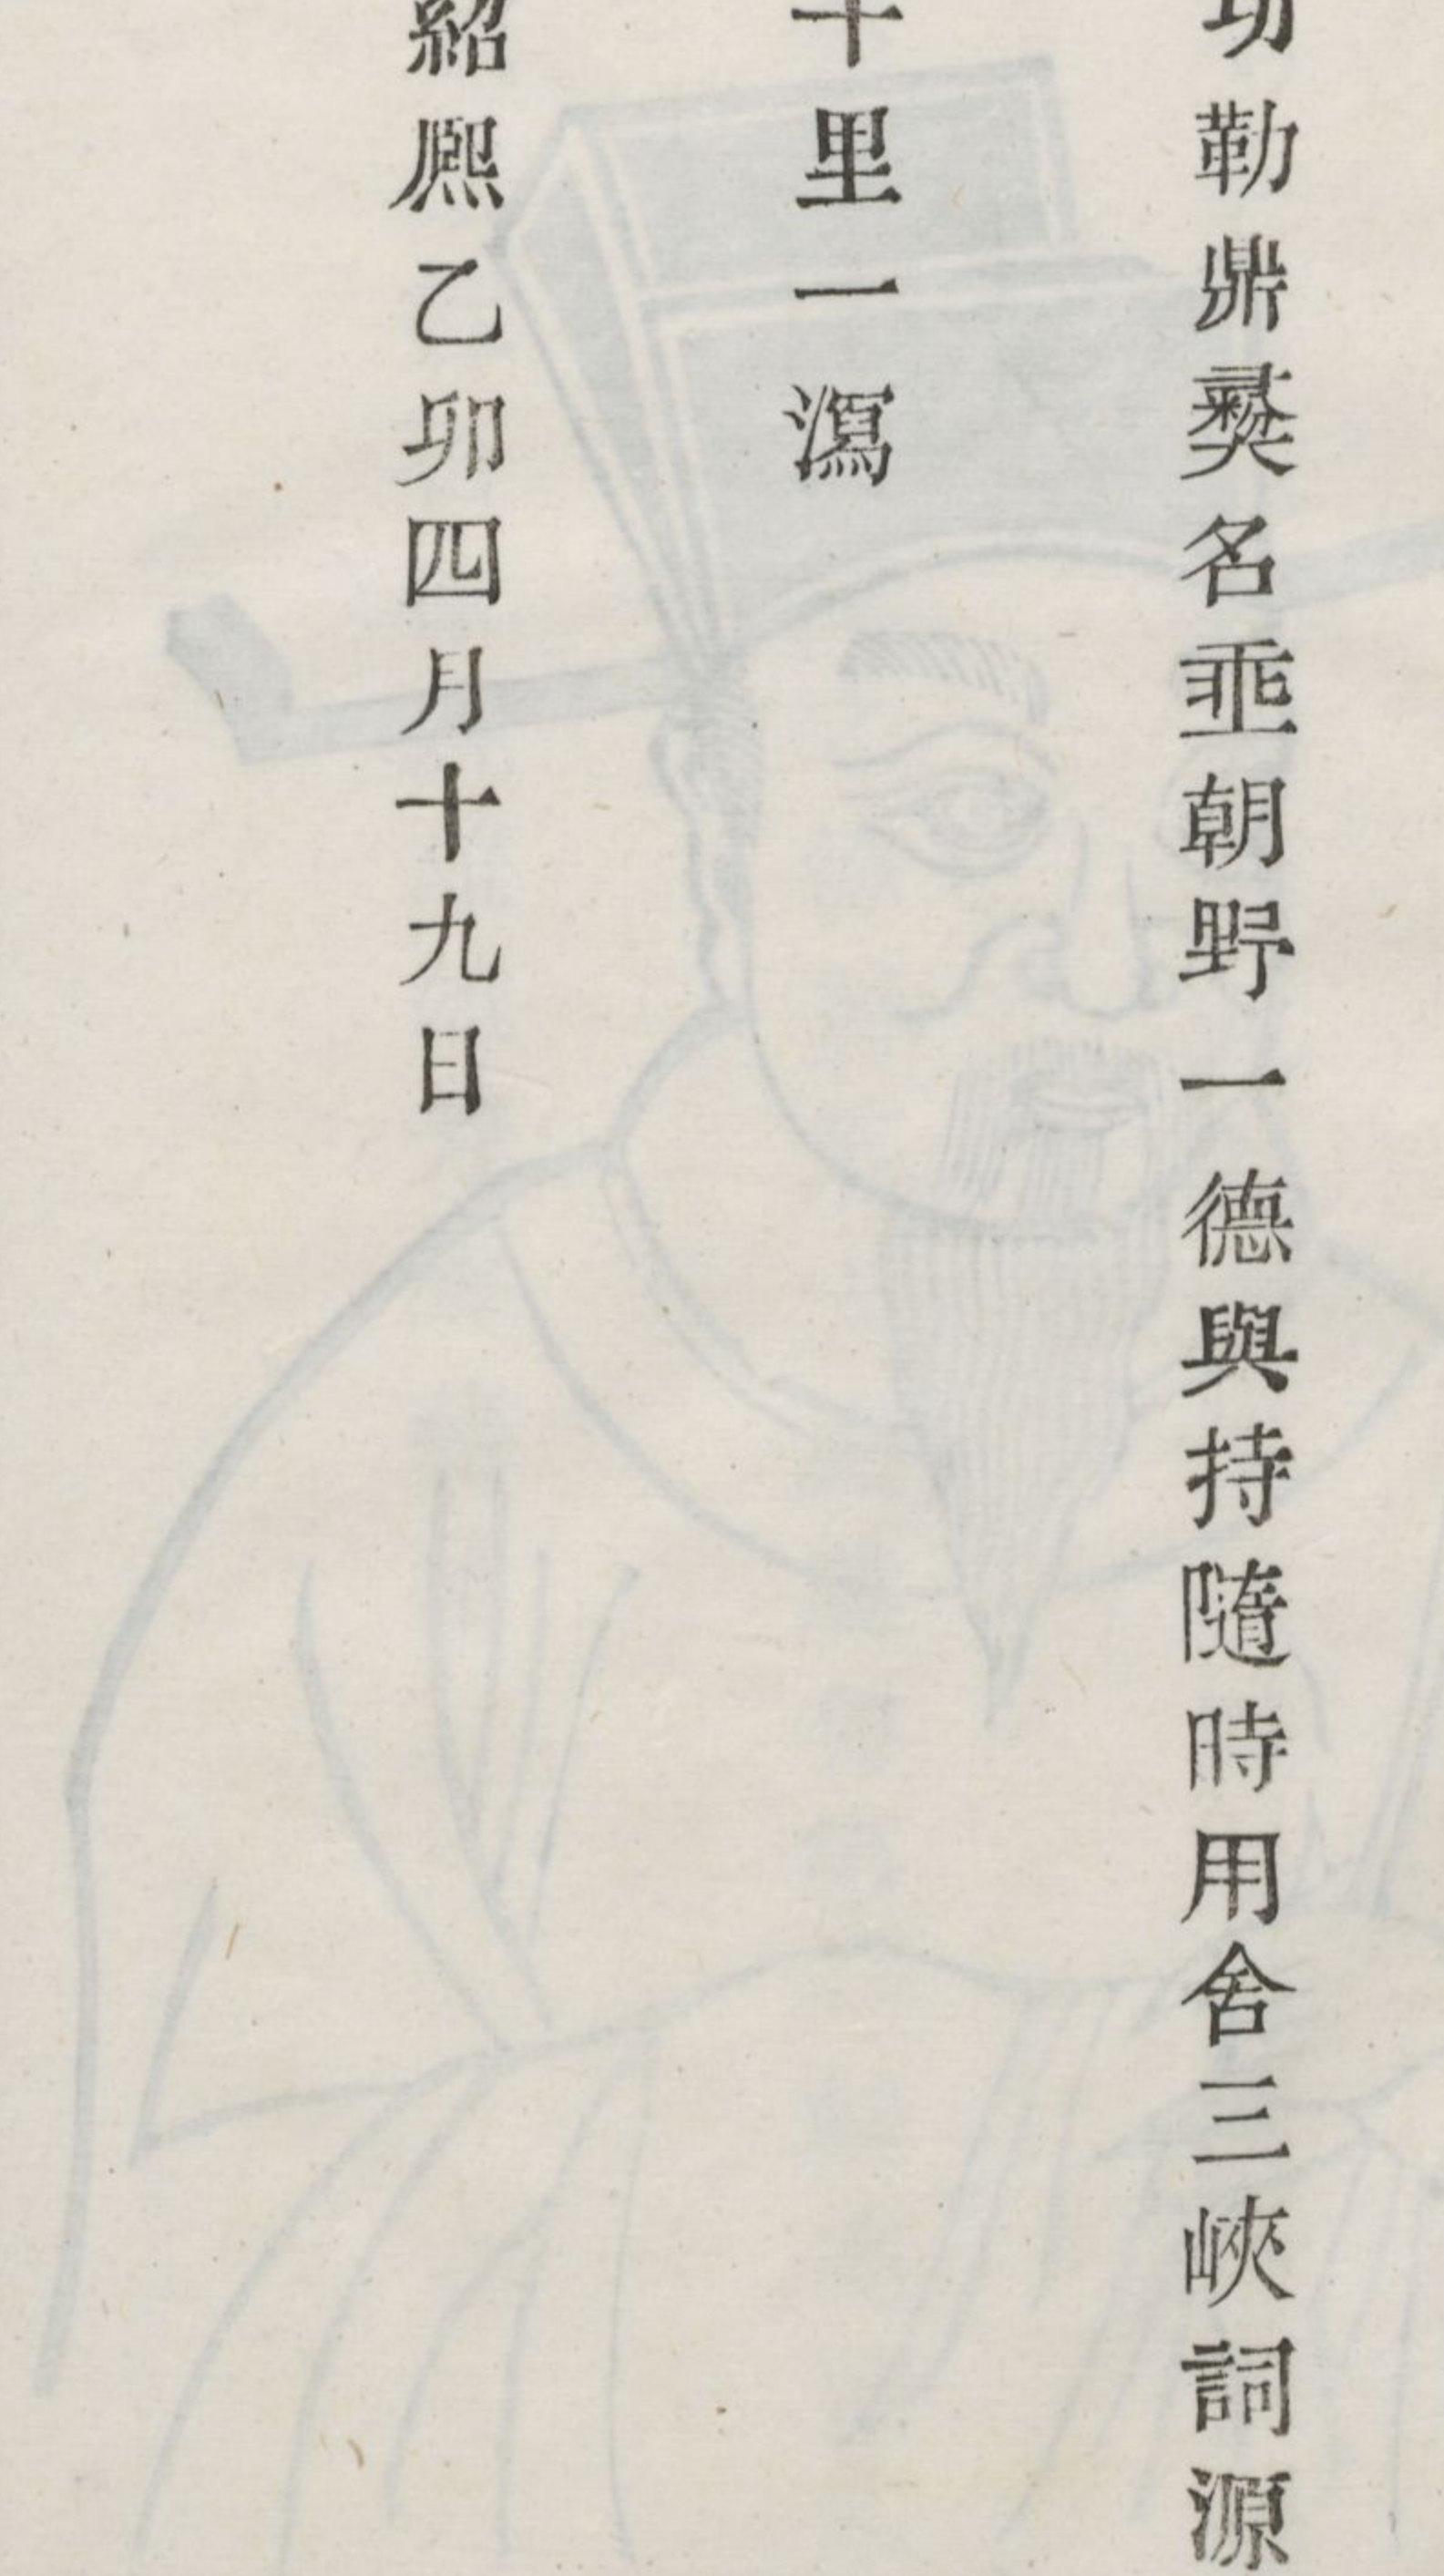 功勒鼎彝名垂朝野一德與持隨時用舍三峽詞源
里一瀉
紹熈乙卯四月十九日